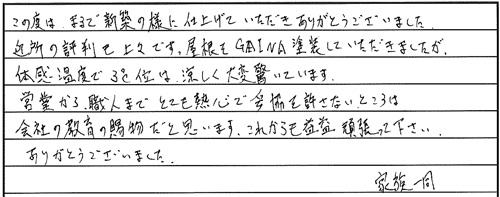 この度は まるで新築の様に仕上げていただきありがとうございました。
近所の評判も上々です。屋根もGAINA塗装していただきましたが、
体感温度で3度位は、涼しく大変驚いています。
営業から、職人まで とても熱心で妥協を許さないところは
会社の教育の賜物だと思います。これからも益益 頑張って下さい。
ありがとうございました。
家族一同